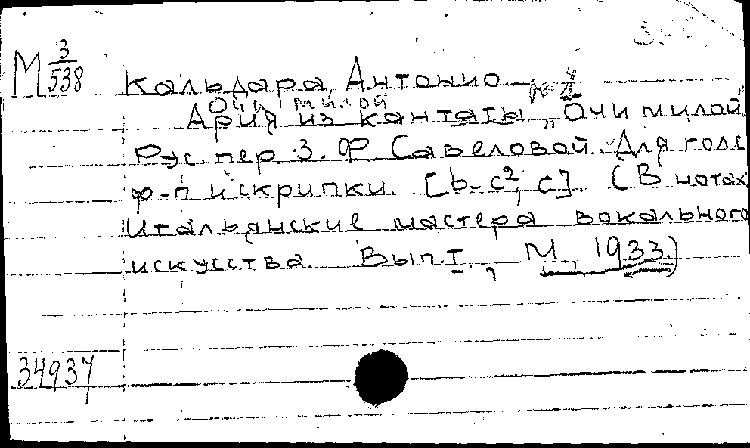 М 3/538
Кальдара, Антонио
Очи милой
Ария из кантаты „Очи милой
Рус. пер. З. Ф. Савеловой. Для голс
ф-п и скрипки. [b-c², c] (В нотах
Итальянские мастера вокального
искусства. Вып. I., М., 1933.)
34937